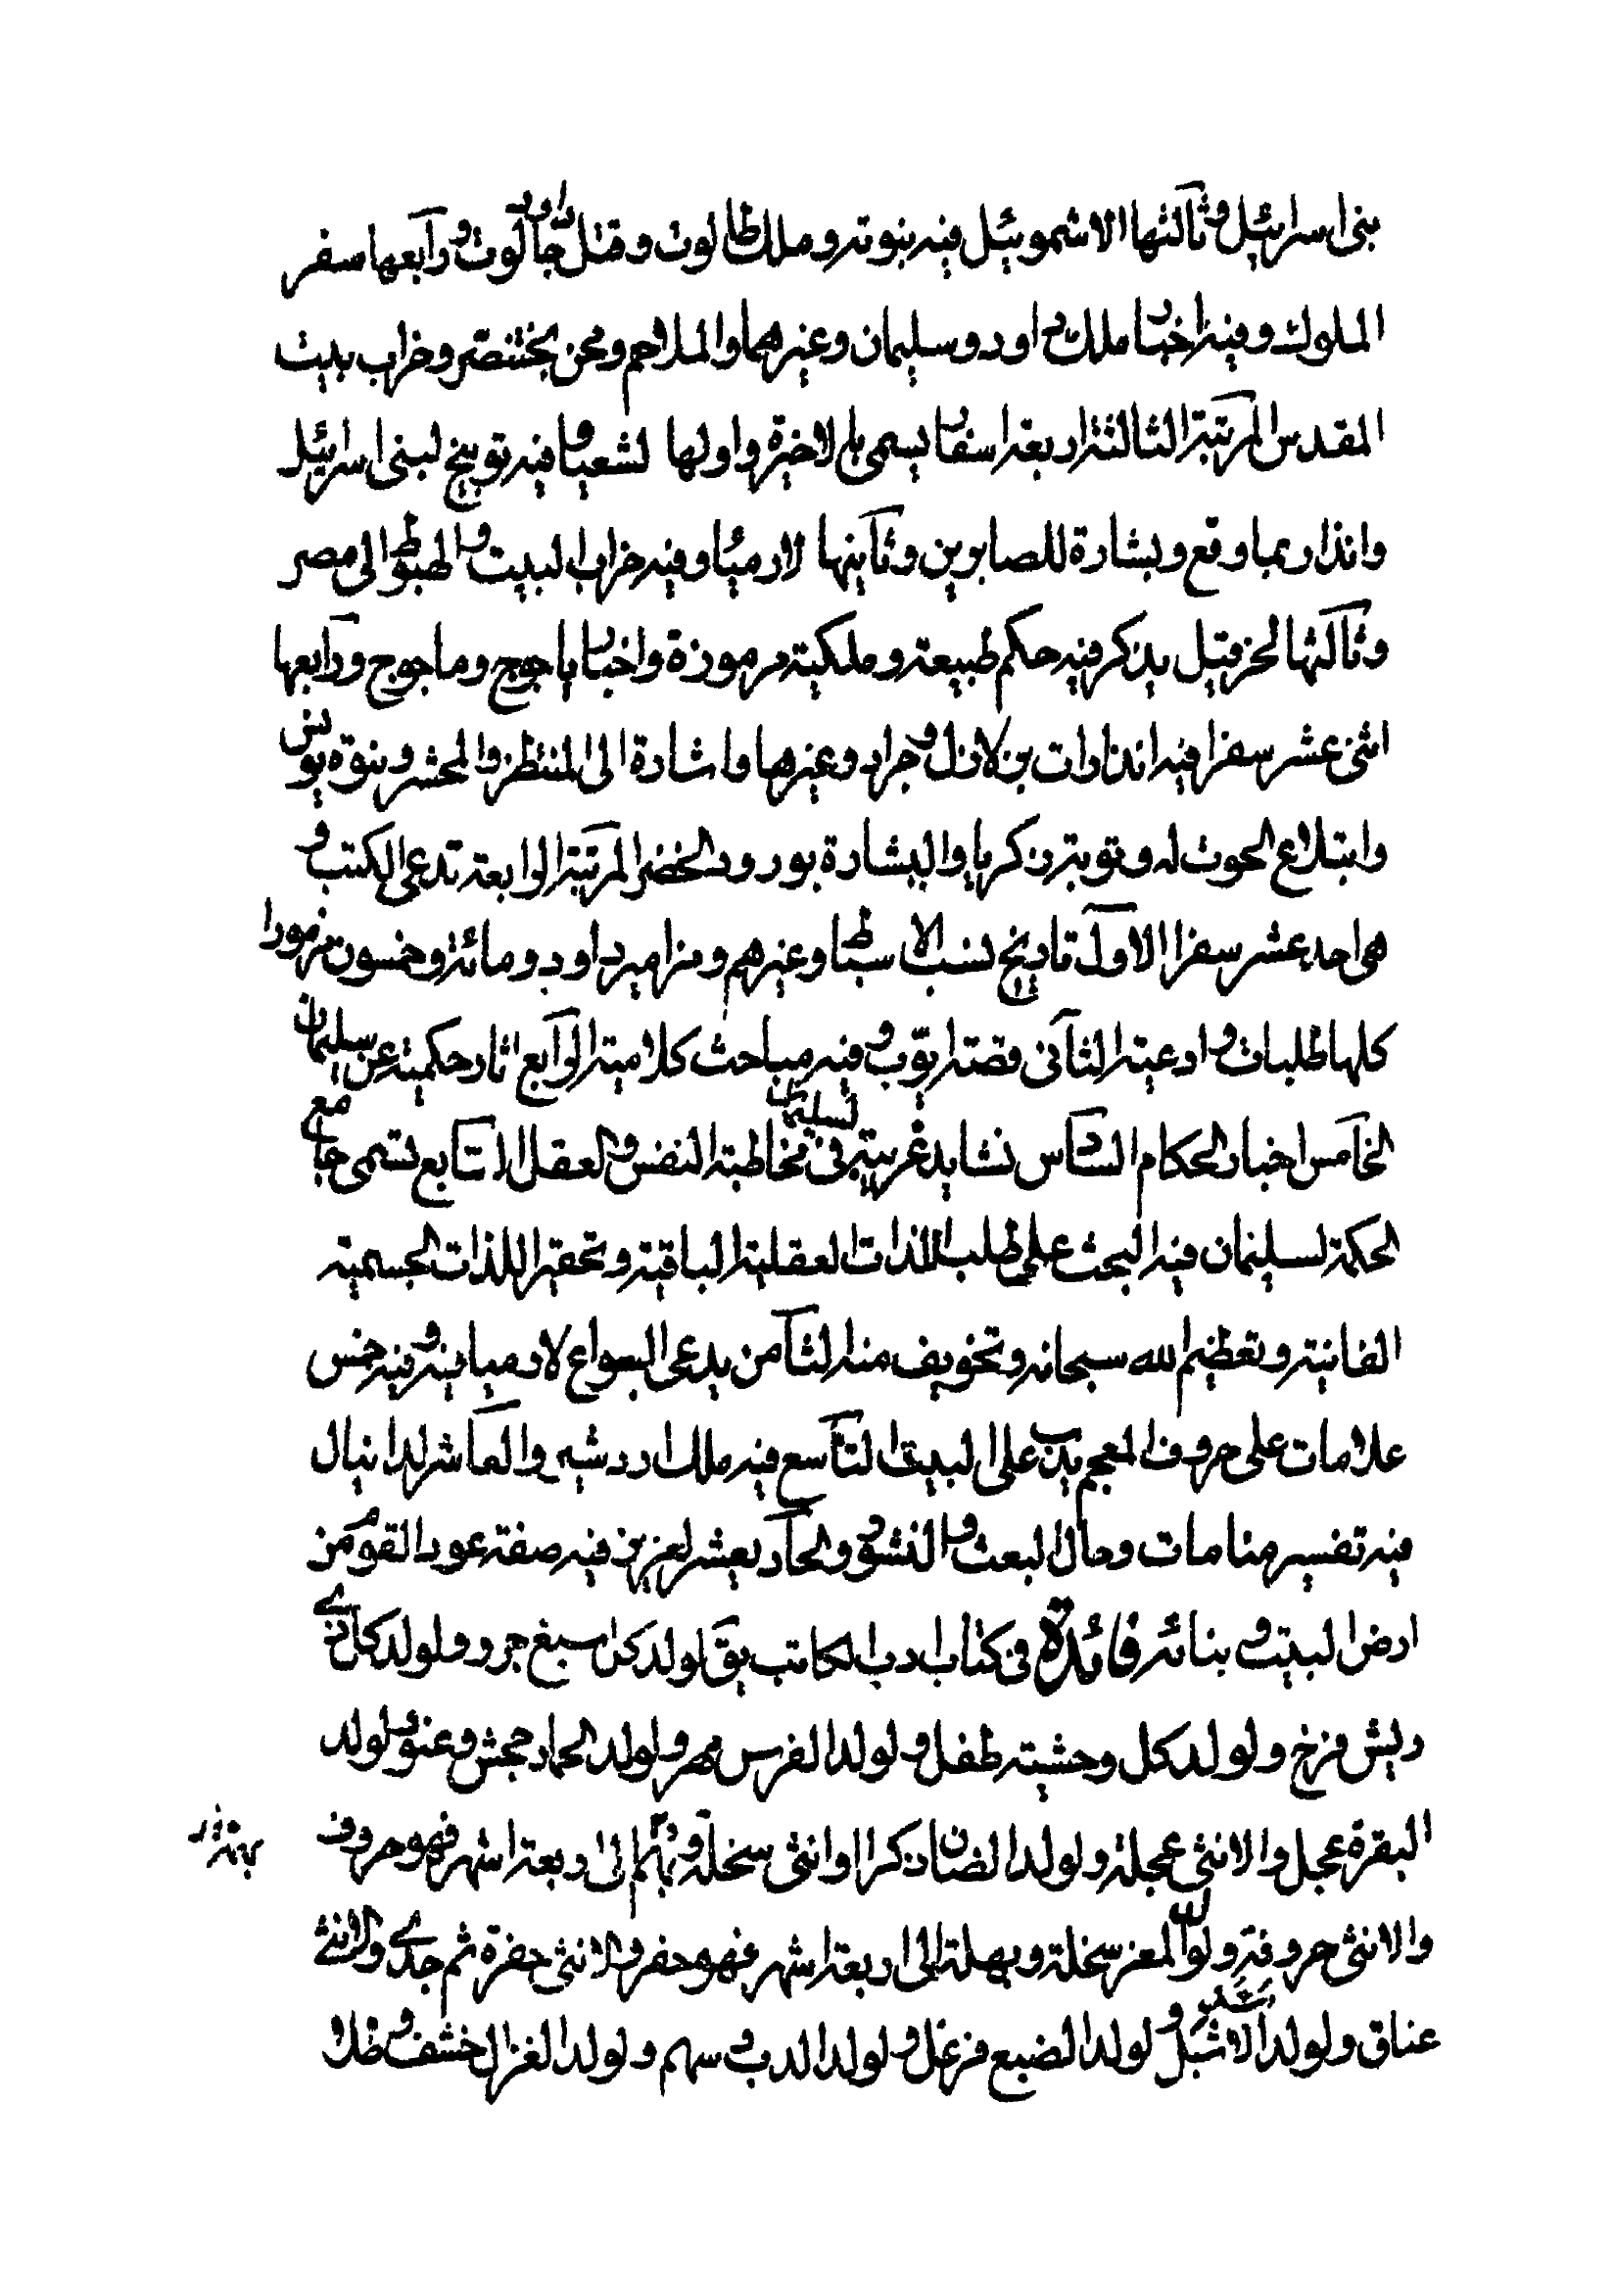 بنى اسرائيل وثالثها الاشموئيل فيه بنوته وملك طالوت وقتل داود جالوت ورابعها سفر
الملوك وفيه اخبار ملك داود وسليمان وغيرهما والملاحم ومحن بختنصر وخراب بيت
المقدس المرتبة الثالثة اربعة اسفار يسمى بالاخيرة واولها لشعيا وفيه توبيخ لبنى اسرائيل
وانذار بما وقع وبشارة للصابرين وثانيها لارميا وفيه خراب البيت والهبوط الى مصر
وثالثها لحزقيل يذكر فيه حكم طبيعة وملكية مرموزة واخبار ياجوج وماجوج ورابعها
اثنى عشر سفرا فيه انذارات بزلازل وجراد وغيرها واشارة الى المنتظر والمحشر ونبوة يونس
وابتلاع الحوت له وتوبة زكريا والبشارة بورود الخضر المرتبة الرابعة تدعى الكتب و
هى احد عشر سفرا الاول تاريخ نسب الاسباط وغيرهم ومزامير داود ومائة وخمسون مزمورا
كلها طلبات وادعية الثانى قصة ايوب وفيه مباحث كلامية الرابع اثار حكمية عن سليمان
الخامس اخبار الحكام السادس نشايد غريبة لسليمان فى مخاطبة النفس والعقل السابع تسمى جامع
الحكمة لسليمان فيه البحث على طلب اللذات العقلية الباقية وتحقير اللذات الجسمية
الفانية وتعظيم الله سبحانه وتخويف منه الثامن يدعى البواع لارميا وفيه خمس
علامات على حروف المعجم يندب على البيت التاسع فيه ملك اردشير والعاشر لدانيال
فيه تفسير منامات وحال البعث والنشور والحاديعشر لعزير فيه صفة عود القوم من
ارض البيت وبنائه فائدة فى كتاب ادب الكاتب يق لولد كل سبع جرو ولولد كل ذى
ريش فرخ ولولد كل وحشية طفل ولولد الفرس مهر ولولد الحمار جحش وعفو ولولد
البقرة عجل والانثى عجلة ولولد الضان ذكرا او انثى سخلة وبهم الى اربعة اشهر فهو حروف
والانثى حروفة ولولد المعز سخلة وبهلة الى اربعة اشهر فهو جفر والانثى جفرة ثم جدى والانثى
عناق ولولد الاسد شبل ولولد الضبع فرعل ولولد الدب وسهم ولولد الغزال خشف وطلا